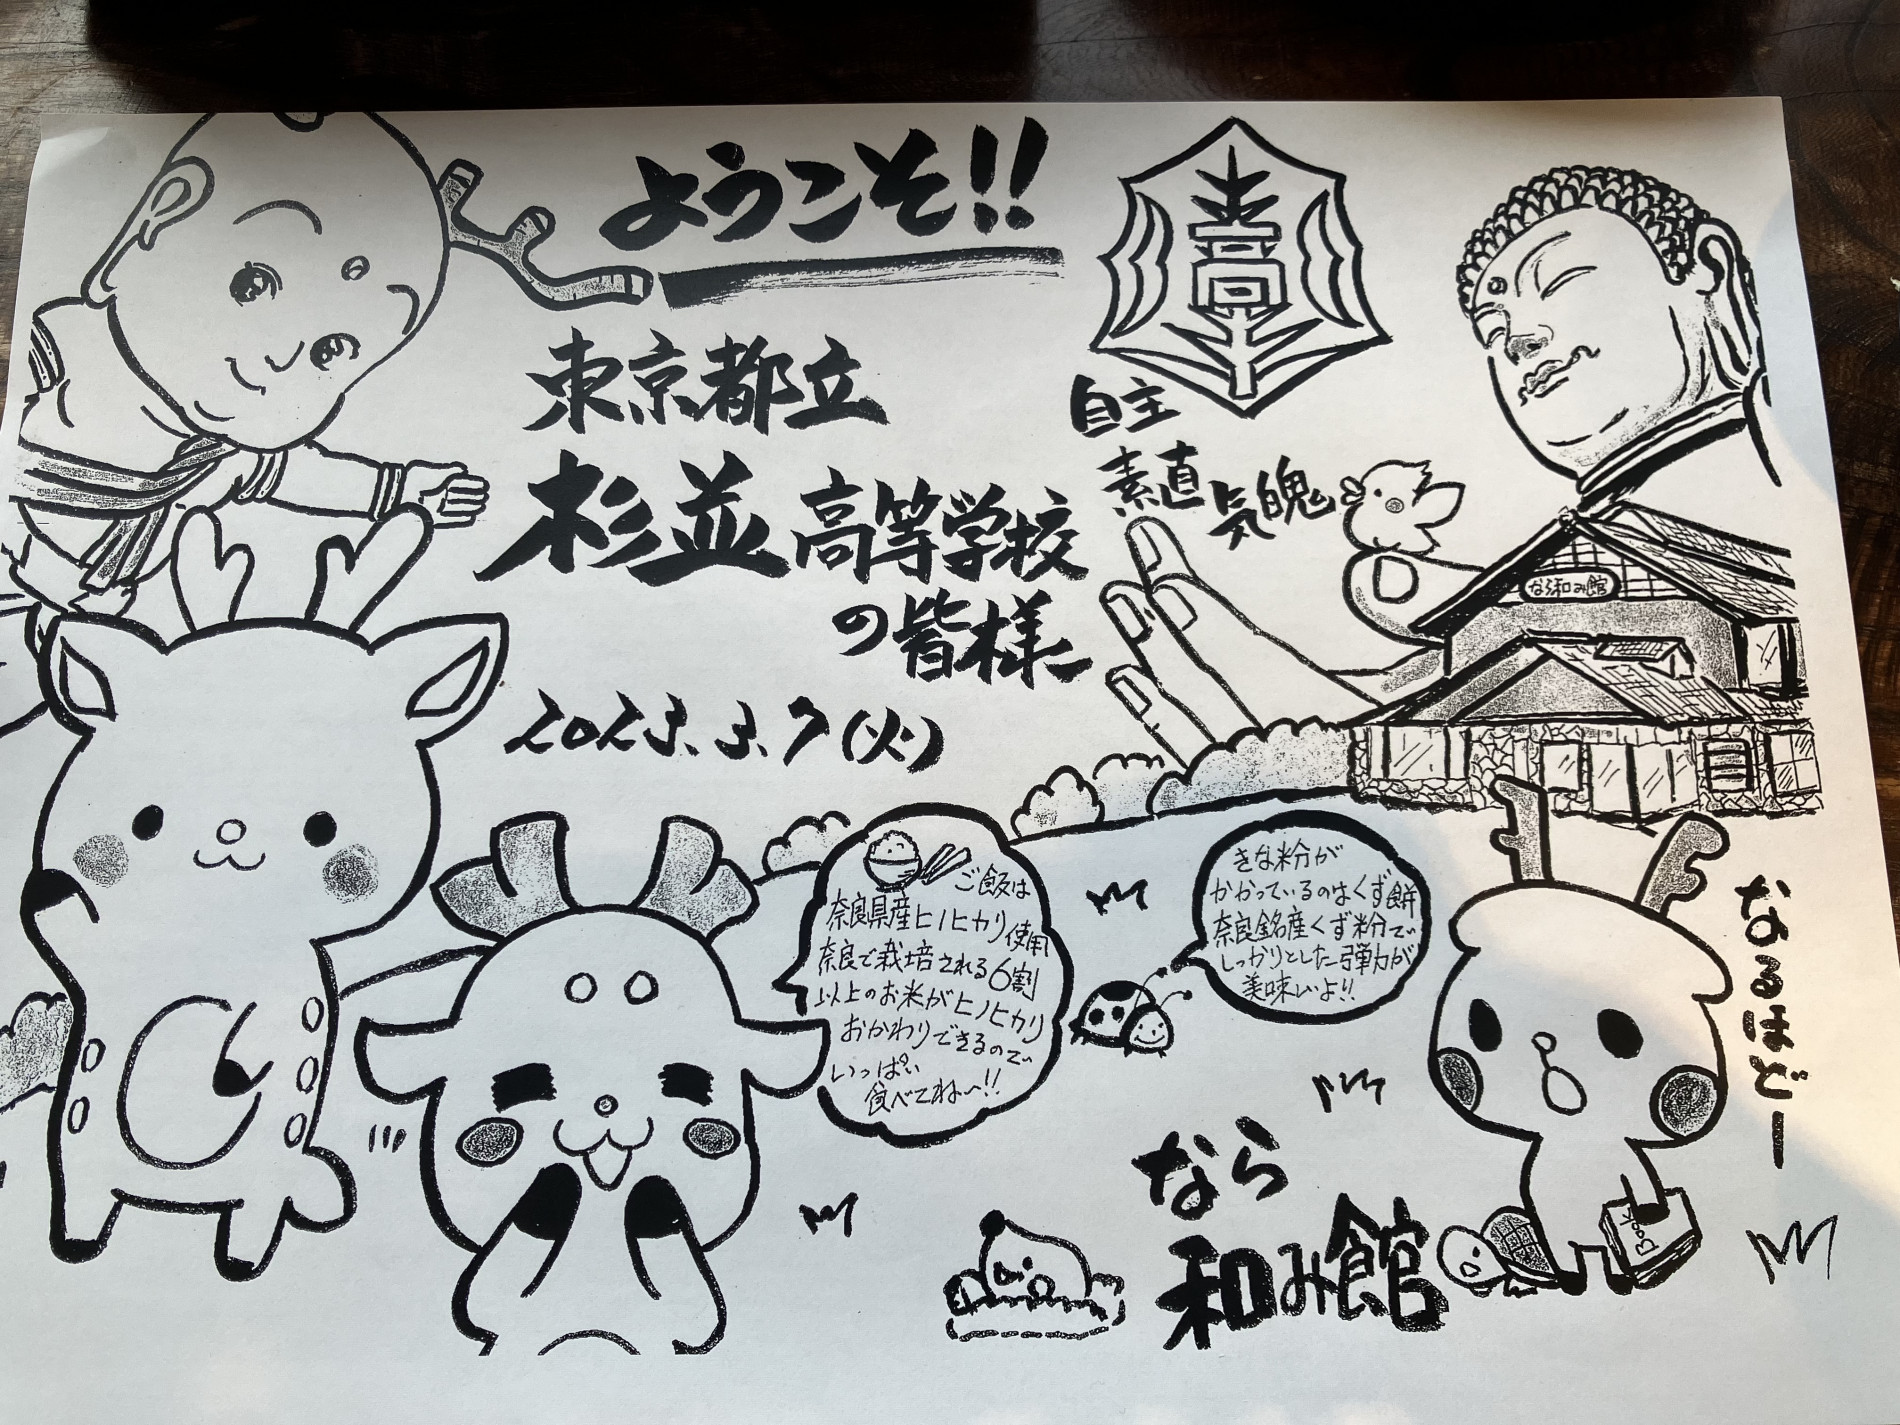 ようこそ!!
東京都立
杉並高等学校
の皆様
2023.3.7(火)
高
自主
素直
気魄
なら和み館
ご飯は
奈良県産ヒノヒカリ使用
奈良で栽培される6割
以上のお米がヒノヒカリ
おかわりできるので
いっぱい
食べてね〜!!
きな粉が
かかっているのはくず餅
奈良銘産くず粉で
しっかりとした弾力が
美味しいよ!!
なるほどー
Book
なら
和み館